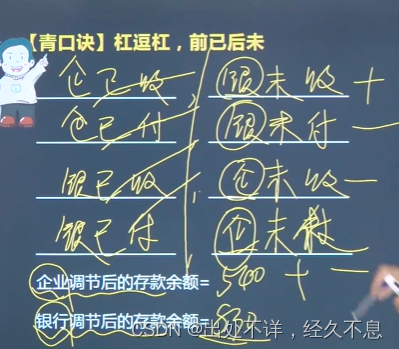 【青口诀】杠逗杠，前已后未
企已收，银未收 +
企已付 银未付 一
银已收，企未收一
银已付 企未
企业调节后的存款余额= 500 + 一
银行调节后的存款余额=
CSDN @出处不详，经久不息